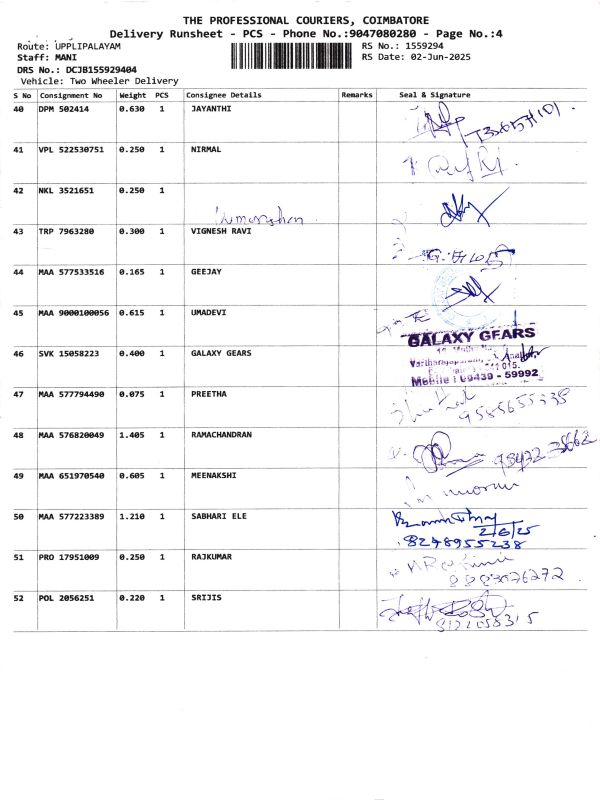 THE PROFESSIONAL COURIERS, COIMBATORE
Delivery Runsheet - PCS - Phone No.:9047080280 - Page No.:4
Route: UPPLIPALAYAM RS No.: 1559294
Staff: MANI RS Date: 02-Jun-2025
DRS No.: DCJB155929404
Vehicle: Two Wheeler Delivery
S No Consignment No Weight PCS Consignee Details Remarks Seal & Signature
40 DPM 502414 0.630 1 JAYANTHI
41 VPL 522530751 0.250 1 NIRMAL
42 NKL 3521651 0.250 1
43 TRP 7963280 0.300 1 VIGNESH RAVI
44 MAA 577533516 0.165 1 GEEJAY
45 MAA 9000100056 0.615 1 UMADEVI
GALAXY GEARS
46 SVK 15058223 0.400 1 GALAXY GEARS
Mobile : 99439 - 59992
47 MAA 577794490 0.075 1 PREETHA
9585655338
48 MAA 576820049 1.405 1 RAMACHANDRAN
49 MAA 651970540 0.605 1 MEENAKSHI
50 MAA 577223389 1.210 1 SABHARI ELE
2/6/25
8248955238
51 PRO 17951009 0.250 1 RAJKUMAR
8883076272
52 POL 2056251 0.220 1 SRIJIS